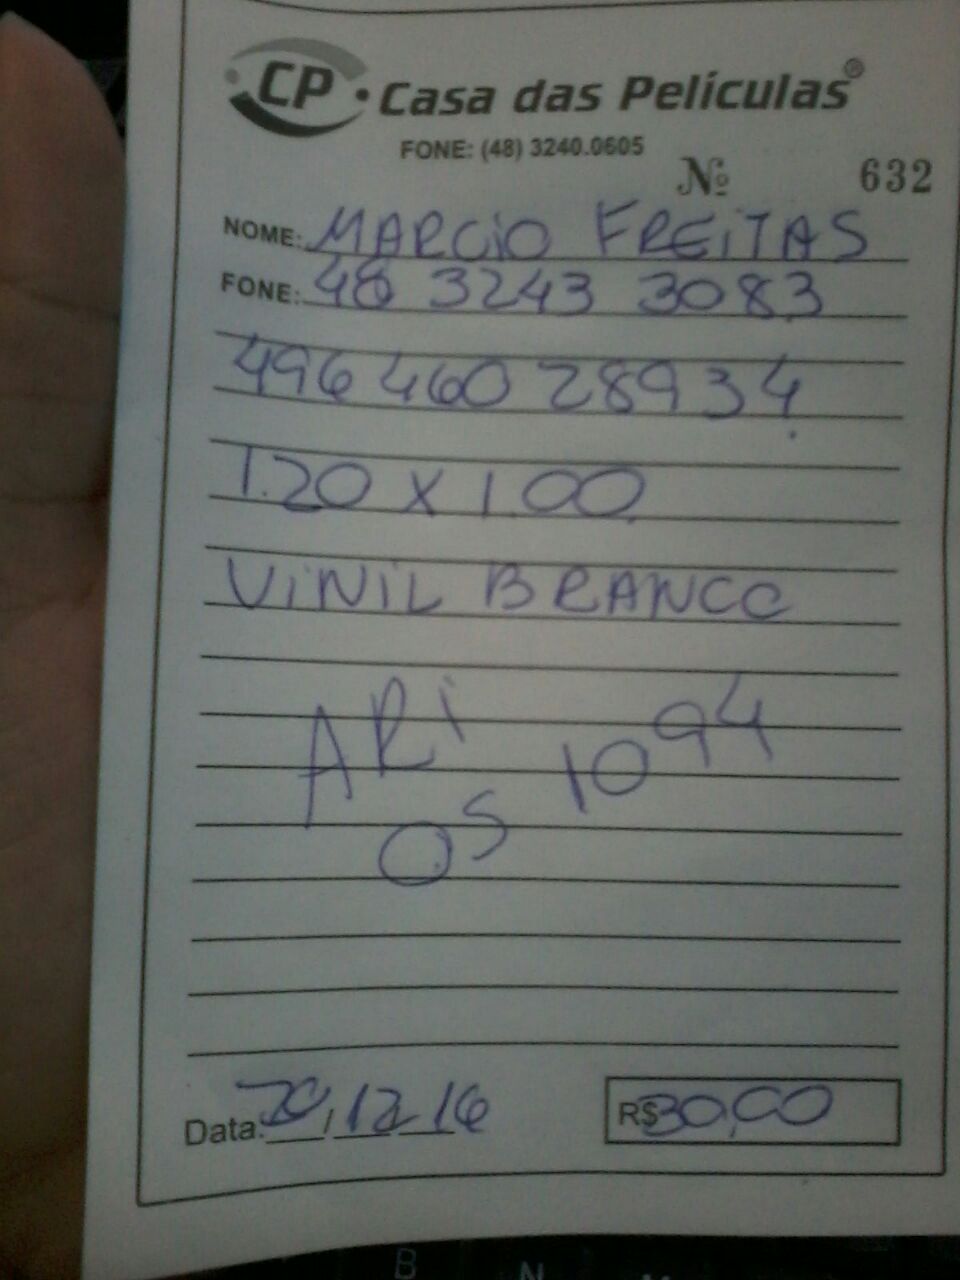 CP. Casa das Películas®
FONE: (48) 3240.0605
Nº 632
NOME: MARCIO FREITAS
FONE: 48 3243 3083
496 460 28934
1.20 X 1.00
VINIL BRANCO
ARI
OS 1094
Data: 20/12 16 R$ 30,00
B N